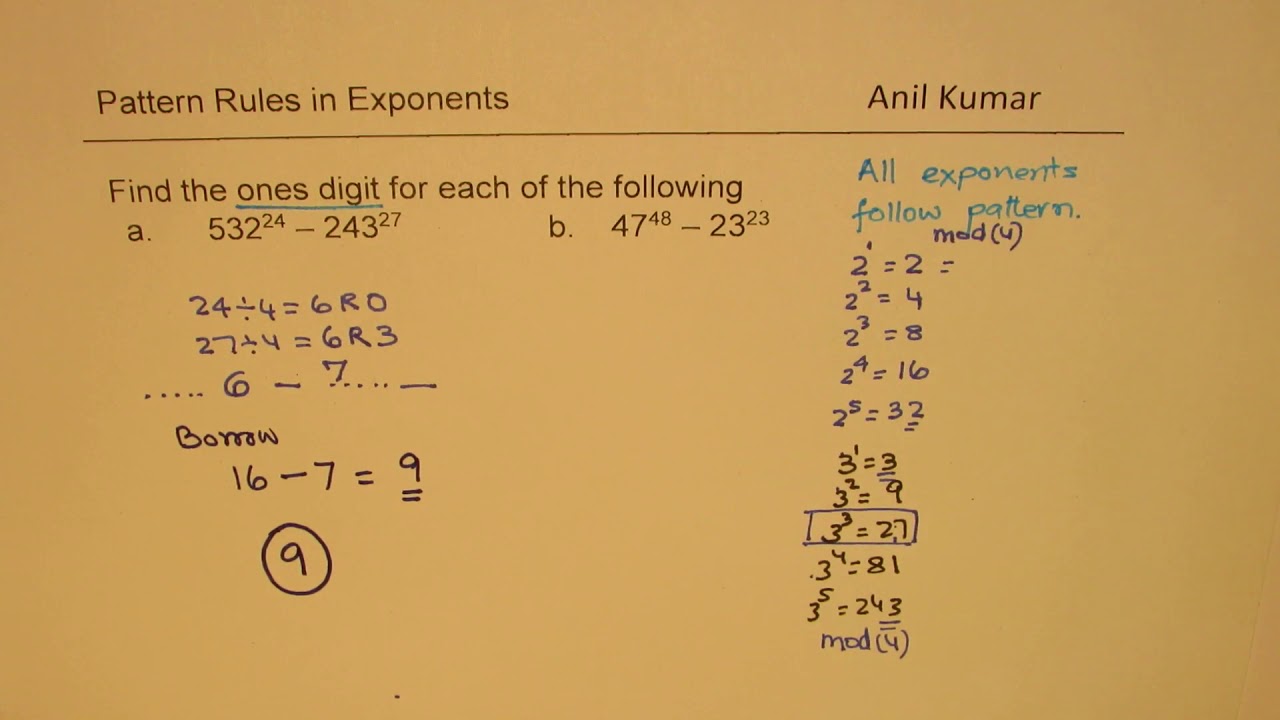 Pattern Rules in Exponents
Anil Kumar
Find the ones digit for each of the following
a. 532²⁴ – 243²⁷
b. 47⁴⁸ – 23²³
24÷4 = 6 R 0
27÷4 = 6 R 3
..... 6 – 7..... —
Borrow
16 – 7 = 9
9
All exponents
follow pattern.
mod(4)
2¹ = 2 =
2² = 4
2³ = 8
2⁴ = 16
2⁵ = 32
3¹ = 3
3² = 9
3³ = 27
3⁴ = 81
3⁵ = 243
mod(4)